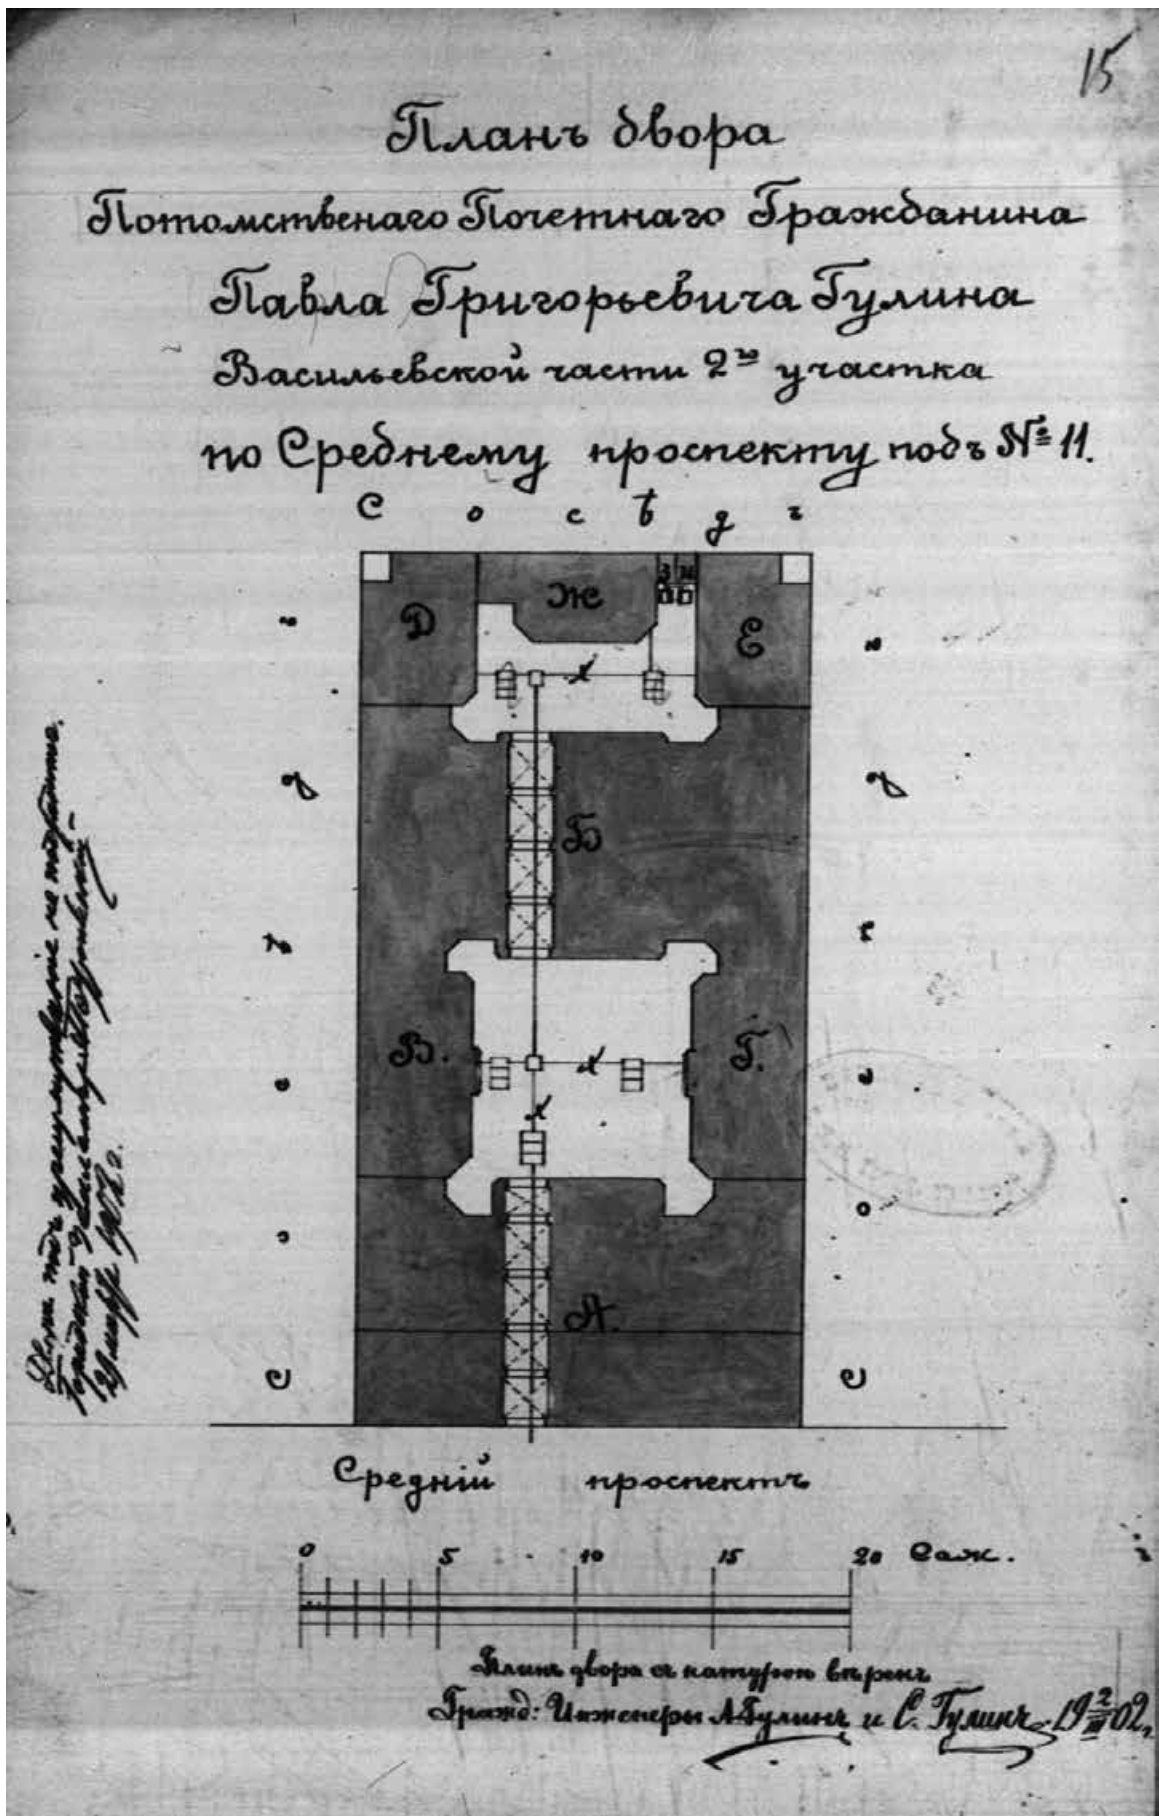 15
Планъ двора
Потомственаго Почетнаго Гражданина
Павла Григорьевича Гулина
Васильевской части 2го участка
по Среднему проспекту подъ № 11.
Сосѣдъ
Д
Ж
З
И
Е
Сосѣдъ
Сосѣдъ
Б
В.
Г.
А.
Средній проспектъ
0 5 10 15 20 Саж.
Планъ двора съ натурою вѣренъ
Гражд: Инженеры А. Гулинъ и С. Гулинъ 19 2/III 02 г.